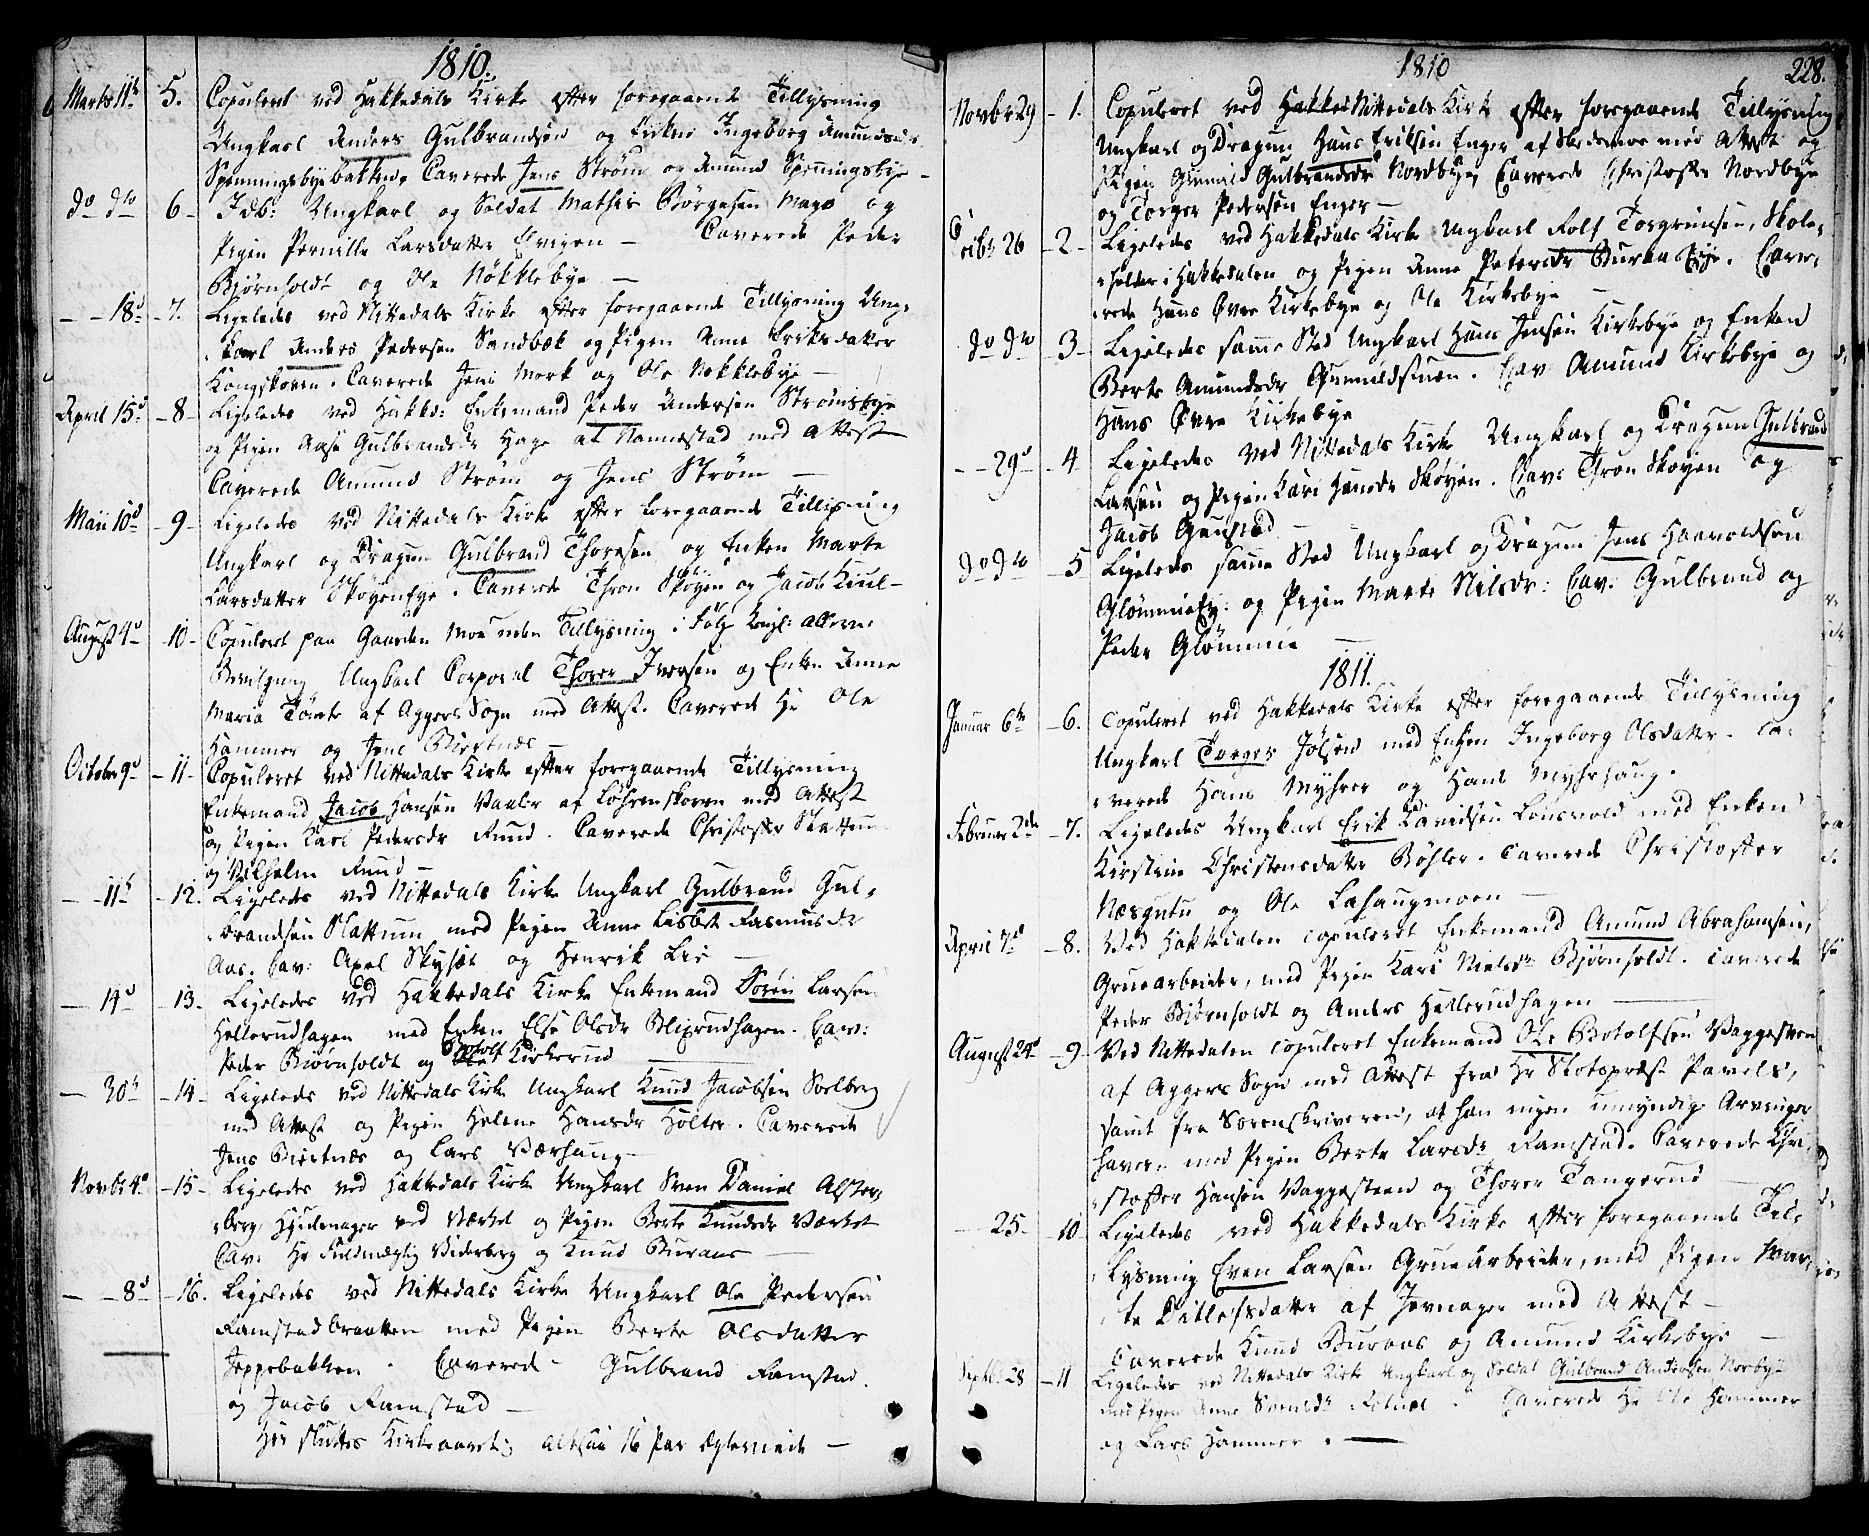 1810.
Marts 11te 5. Copuleret ved Hakkedals Kirke efter foregaaende Tillysning
Ungkarl Anders Gulbrandsen og Enken Ingeborg Amundsdr
Spenningsbyebakken, Caverede Jens Strøm og Amund Spenningsbye -
do do 6 - Idb: Ungkarl og Soldat Mathis Børgesen Mago og
Pigen Pernille Larsdatter Elvigen - Caverede Peder
Bjørnholdt og Ole Nökklebye -
- - 18d - 7. Ligeledes ved Nittedals Kirke efter foregaaende Tillysning Ung-
karl Anders Pedersen Sandbæk og Pigen Anne Eriksdatter
Kongskoven. Caverede Jens Mork og Ole Nøkklebye -
April 15d - 8 - Ligeledes ved Hakkd: Enkemand Peder Andersen Strømsbye
og Pigen Aase Gulbrandsdr Hage at Nannestad med Attest
Caverede Amund Strøm og Jens Strøm -
Maii 10d - 9 - Ligeledes ved Nittedals Kirke efter foregaaende Tillysning
Ungkarl og Dragun Gulbrand Thoresen og Enken Marte
Larsdatter Skøyen Eye. Caverede Thron Skøyen og Jacob Kiuul -
August 4d - 10 - Copuleret paa Gaarden Moe uden Tillysning i Følge Kongl: allern:
Bevilgning Ungkarl Corporal Thorer Iversen og Enken Anne
Maria Tømte af Aggers Sogn med Attest. Caverede Hr Ole
Hammer og Jens Biertnæs -
October 9d - 11 - Copuleret ved Nittedals Kirke efter foregaaende Tillysning
Enkemand Jacob Hansen Vaaler af Løhrenskoven med Attest
og Pigen Kari Pedersdr Ruud. Caverede Christoffer Slattum
og Vilhelm Ruud -
- - 11te - 12. Ligeledes ved Nittedals Kirke Ungkarl Gulbrand Gul-
brandsen Slattum med Pigen Anne Lisbet Rasmusdr
Aas. Cav: Axel Skyset og Henrik Lie -
- 14d - 13 - Ligeledes ved Hakkedals Kirke Enkemand Søren Larsen
Hellerudhagen med Enken Else Olsdr Blixrudhagen. Cav:
Peder Biørnholdt og Botolf Kirkerud
- 30te - 14 - Ligeledes ved Nittedals Kirke Ungkarl Knud Jacobsen Soelberg
med Attest og Pigen Helene Hansdr Holter. Caverede
Jens Biertnæs og Lars Værhaug
Novbr 4d - 15 - Ligeledes ved Hakkedals Kirke Ungkarl Sven Daniel Alster-
berg Hiulmager ved Værket og Pigen Berte Knudsdr Værket
Cav: Hr Fuldmægtig Viderberg og Knud Buraas -
- - 8d - 16. Ligeledes ved Nittedals Kirke Ungkarl Ole Pedersen
Ramstadbraatten med Pigen Berte Olsdatter
Jeppebakken. Caverede - Gulbrand Ramstad
og Jacob Ramstad -
Her sluttes Kirkeaaret, altsaa 16 Par Egteviede -
1810 228.
Novbr 29 - 1. Copuleret ved Nittedals Kirke efter foregaaende Tillysning
Ungkarl og Dragun Hans Eriksen Enger af Skedsmoe med Attest og
Pigen Gunild Gulbrandsdr Nordbye, Caverede Christoffer Nordbye
og Torger Pedersen Enger -
Decbr 26 - 2 - Ligeledes ved Hakkedals Kirke Ungkarl Rolf Torgrimsen, Skole-
holder i Hakkedalen og Pigen Anne Petersdr Buraas Eye. Cave-
rede Hans Øvre Kirkebye og Ole Kirkebye
do do - 3 - Ligeledes samme Sted Ungkarl Hans Jensen Kirkebye og Enken
Berte Amundsdr Gunnildstuen. Cav Amund Kirkebye og
Hans Øvre Kirkebye
- - 29d - 4 Ligeledes ved Nittedals Kirke Ungkarl og Dragun Gulbrand
Larsen og Pigen Kari Hansdr Skøyen. Cav: Thron Skøyen og
Jacob Gaustad -
do do - 5 Ligeledes samme Sted Ungkarl og Dragun Jens Haavoldsen
Glömmie Ey: og Pigen Marte Nilsdr: Cav: Gulbrand og
Peder Glömmie -
1811.
Januar 6te - 6. Copuleret ved Hakkedals Kirke efter foregaaende Tillysning
Ungkarl Torger Jølsen med Enken Ingeborg Olsdatter - Ca-
verede Hans Myhrer og Hans Myhrhaug.
Februar 2den - 7. Ligeledes Ungkarl Erik Davidsen Lousvold med Enken
Kirstine Christensdatter Bøhler. Caverede Christoffer
Næsgutu og Ole Lahaugmoen -
April 7d - 8. Ved Hakkedalen copuleret Enkemand Amund Abrahamsen,
Gruearbeider, med Pigen Kari Nielsdr Bjørnholdt. Caverede
Peder Biørnholdt og Anders Hellerudhagen
August 24d - 9 - Ved Nittedalen copuleret Enkemand Ole Botolfsen Vaggesteen
af Aggers Sogn med Attest fra Hr Slotspræst Pavels,
samt fra Sorenskriveren, at han ingen umyndige Arvinger
haver, med Pigen Berte Larsdr Ramstad. Caverede Chri-
stoffer Hansen Vaggesteen og Thorer Tangerud
- 25. - 10 - Ligeledes ved Hakkedals Kirke efter foregaaende Til-
lysning Even Larsen Gruearbeider, med Pigen Mar-
te Ditlefsdatter af Jevnager med Attest -
Caverede Knud Buraas og Amund Kirkebye -
Septbr 28 - 11 Ligeledes ved Nittedals Kirke Ungkarl og Soldat Gulbrand Andersen Norbye
med Pigen Anne Svendsdr Rotnæs. Caverede Hr Ole Hammer
og Lars Hammer. -